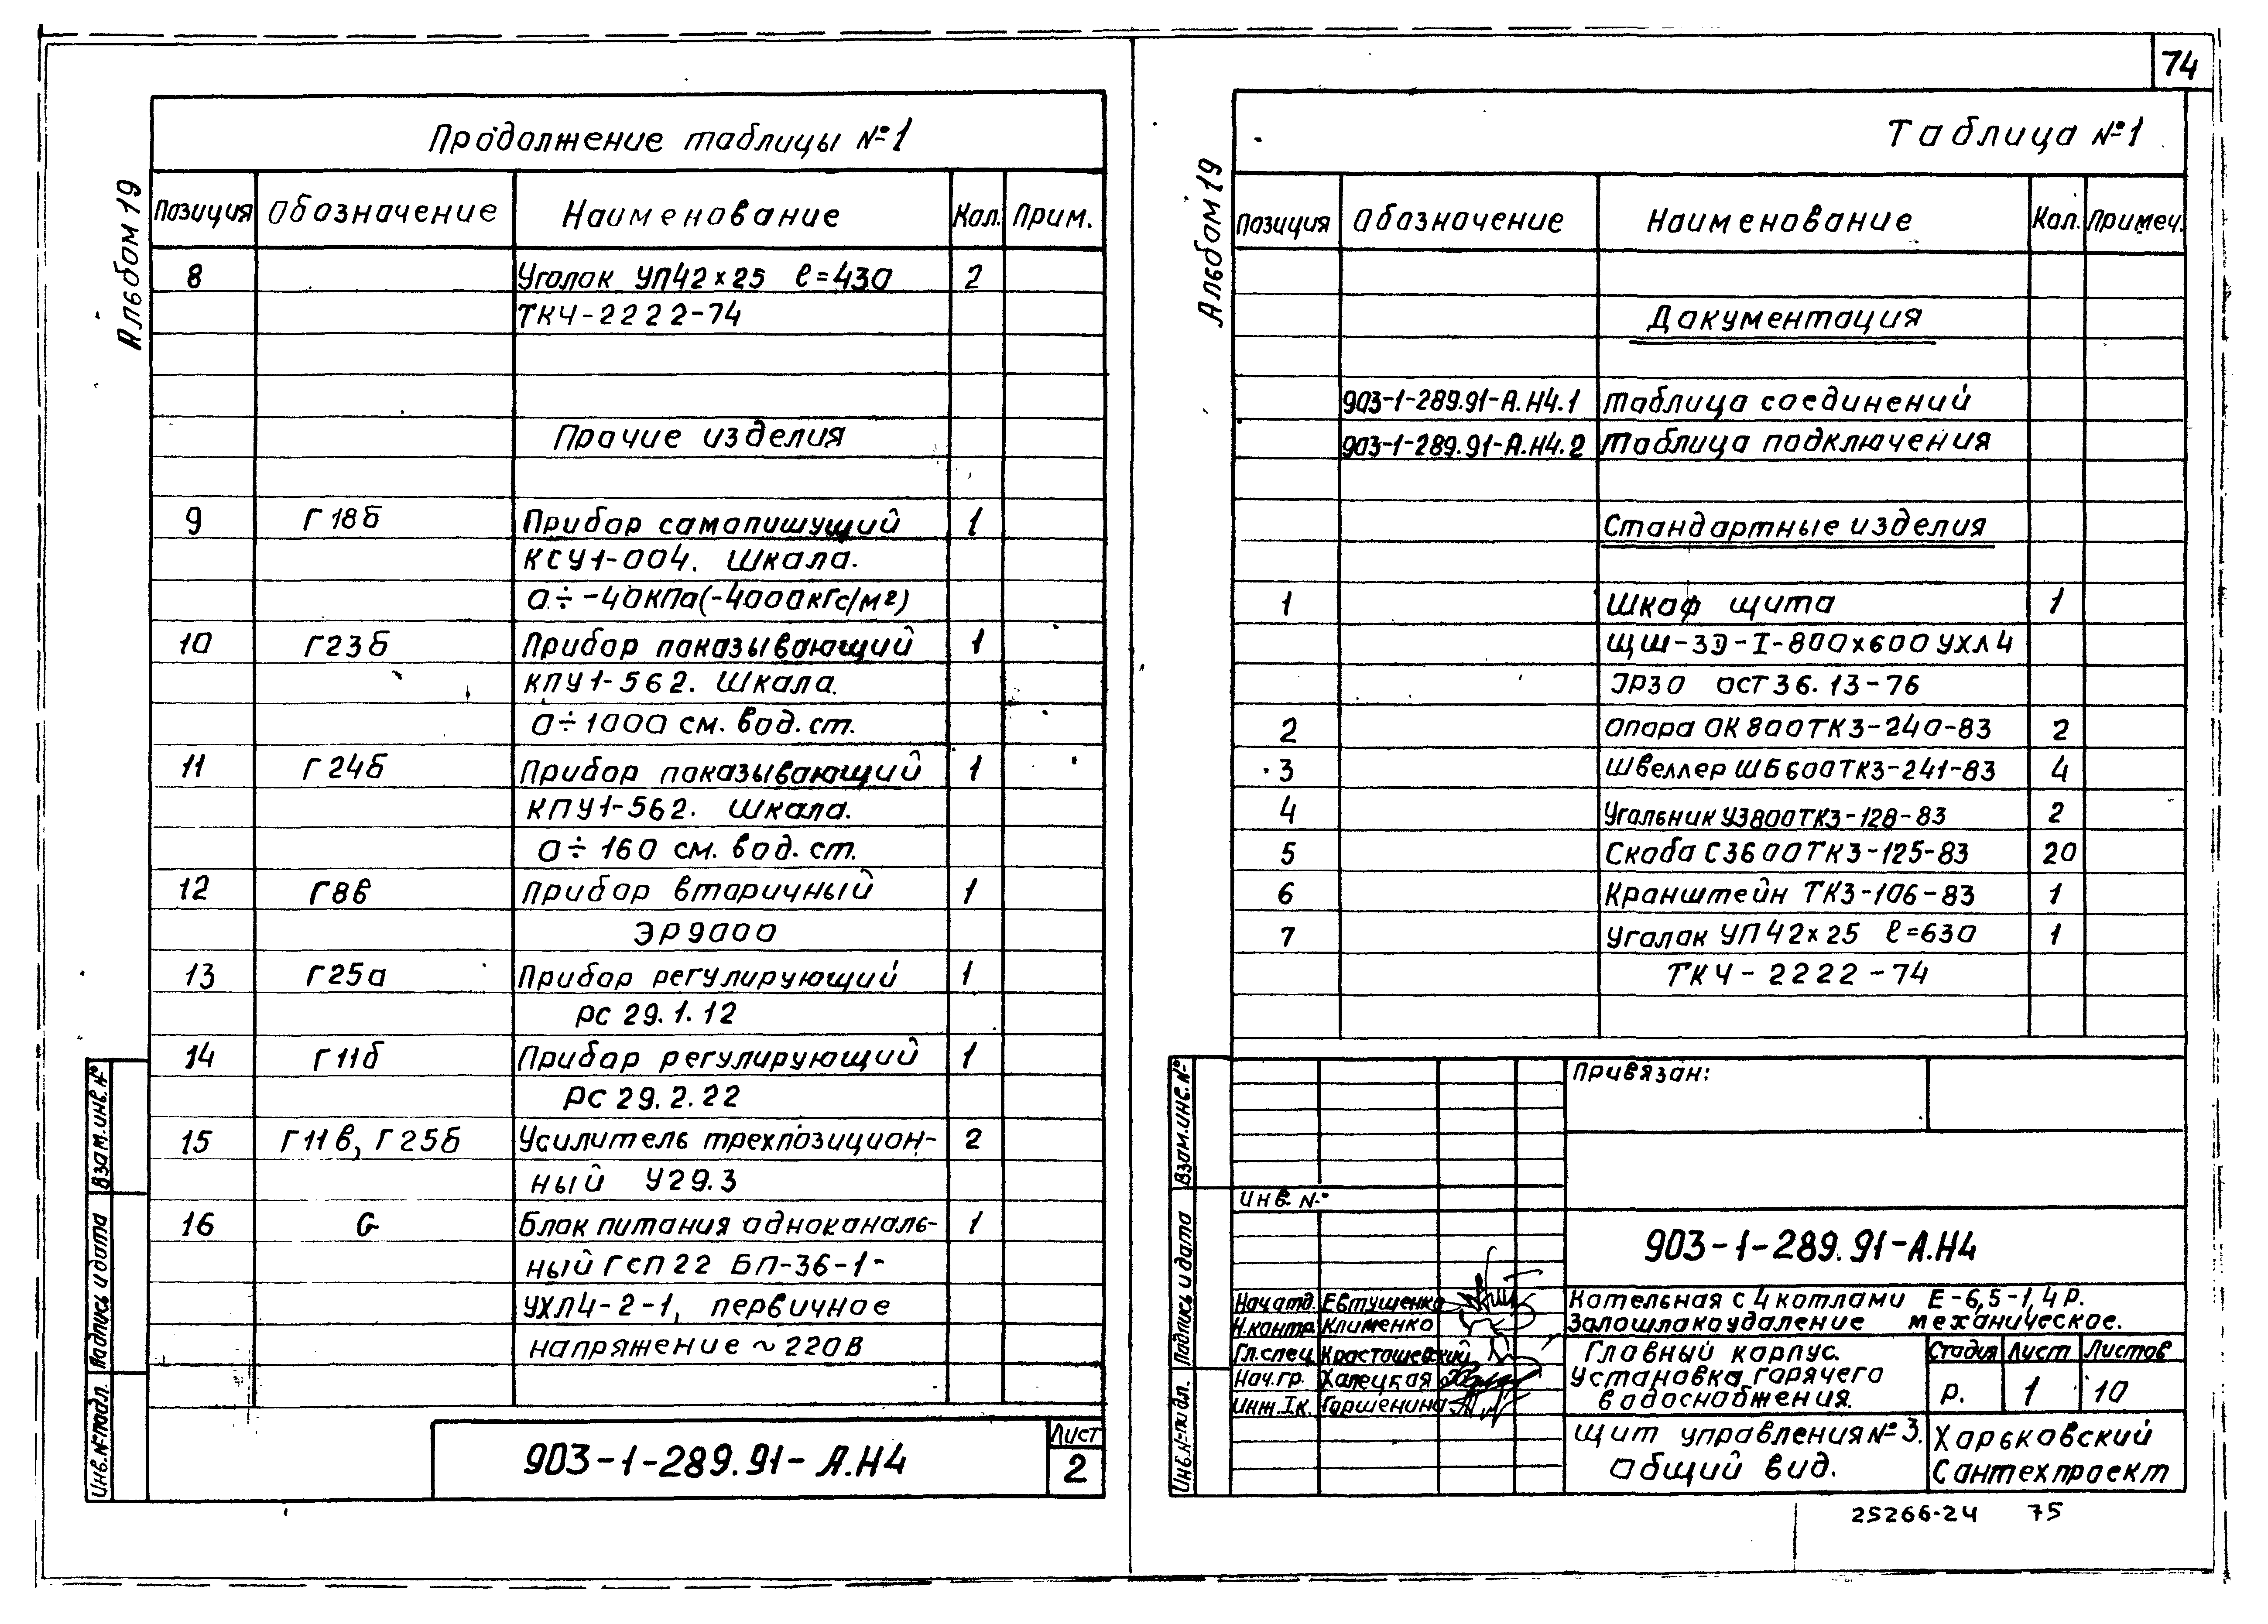 74
Продолжение таблицы №1
Альбом 19
Позиция Обозначение Наименование Кол. Прим.
8 Уголок УП42×25 ℓ=430 2
ТКЧ-2222-74
Прочие изделия
9 Г18б Прибор самопишущий 1
КСУ1-004. Шкала.
0÷-40кПа(-4000кГс/м²)
10 Г23б Прибор показывающий 1
КПУ1-562. Шкала.
0÷1000 см. вод. ст.
11 Г24б Прибор показывающий 1
КПУ1-562. Шкала.
0÷160 см. вод. ст.
12 Г8в Прибор вторичный 1
ЭР9000
13 Г25а Прибор регулирующий 1
РС 29.1.12
14 Г11б Прибор регулирующий 1
РС 29.2.22
15 Г11в, Г25б Усилитель трехпозицион- 2
ный У29.3
16 G Блок питания одноканаль- 1
ный ГСП22 БП-36-1-
УХЛ4-2-1, первичное
напряжение ~220В
Взам.инв.№
Подпись и дата
Инв.№подл.
903-1-289.91-А.Н4
Лист
2
Таблица №1
Альбом 19
Позиция Обозначение Наименование Кол. Примеч.
Документация
903-1-289.91-А.Н4.1 Таблица соединений
903-1-289.91-А.Н4.2 Таблица подключения
Стандартные изделия
1 Шкаф щита 1
ЩШ-3Д-I-800×600УХЛ4
IP30 ОСТ36.13-76
2 Опора ОК800ТК3-240-83 2
3 Швеллер ШБ600ТК3-241-83 4
4 Угольник У3800ТК3-128-83 2
5 Скоба С3600ТК3-125-83 20
6 Кронштейн ТК3-106-83 1
7 Уголок УП42×25 ℓ=630 1
ТКЧ-2222-74
Взам.инв.№
Подпись и дата
Инв.№подл.
Привязан:
Инв. №
903-1-289.91-А.Н4
Нач.отд. Евтушенко
Н.контр. Клименко
Гл.спец. Красташевский
Нач.гр. Халецкая
Инж.Iк. Горшенина
Котельная с 4 котлами Е-6,5-1,4Р.
Золошлакоудаление механическое.
Главный корпус.
Установка горячего
водоснабжения.
Стадия Лист Листов
Р. 1 10
Щит управления №3.
Общий вид.
Харьковский
Сантехпроект
25266-24 75